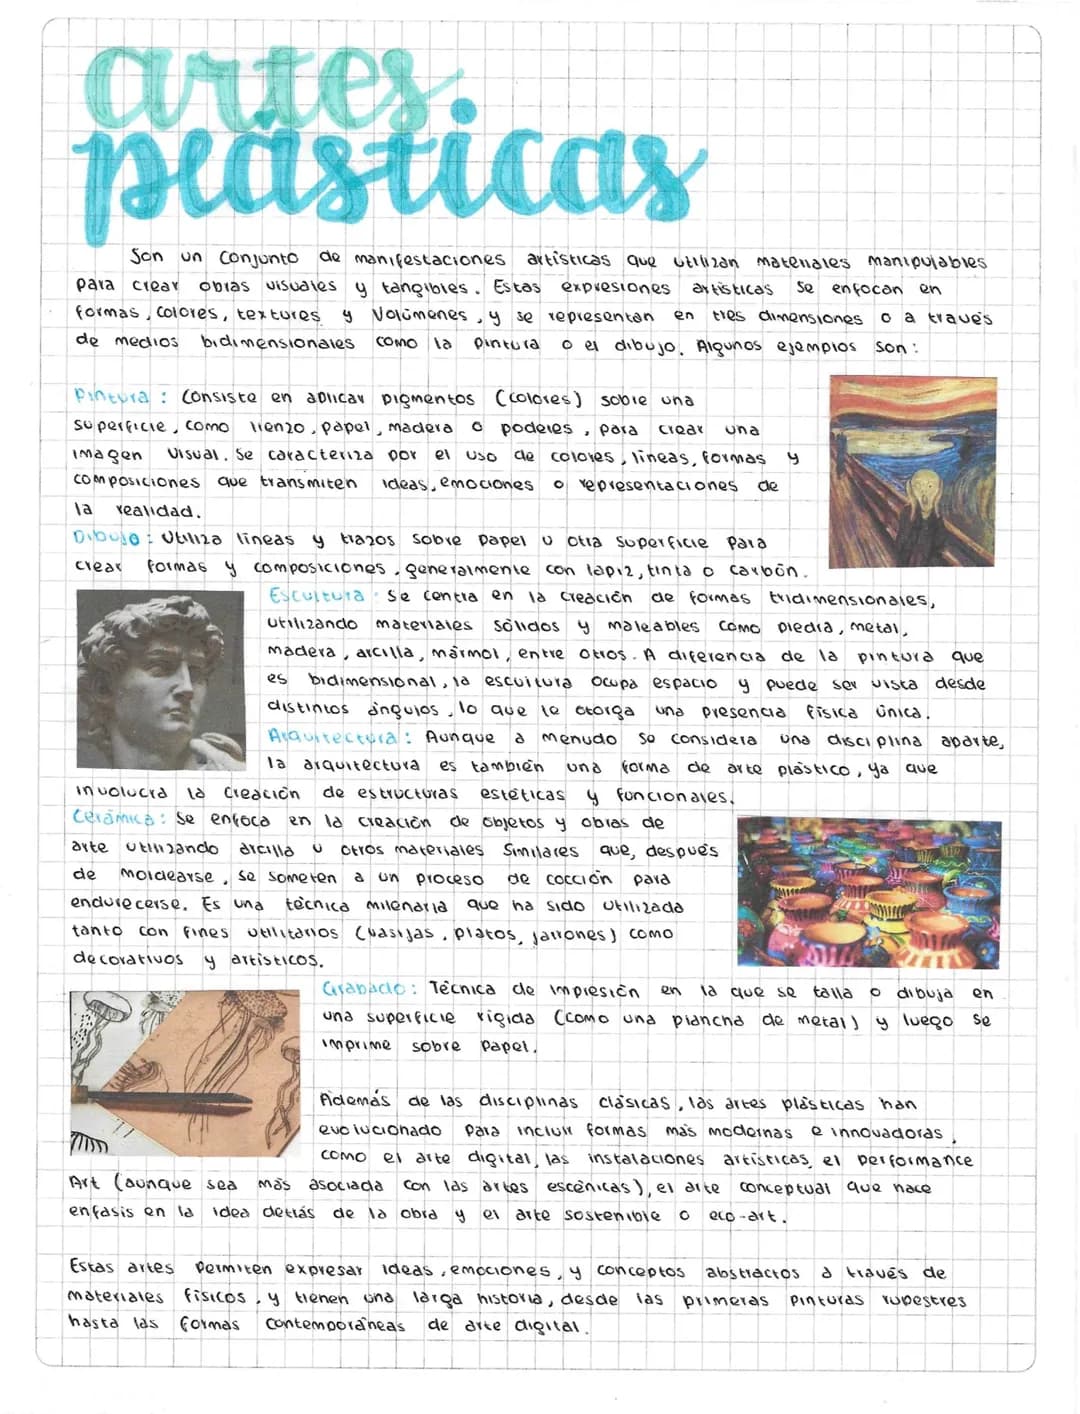 artes
plásticas
Son un conjunto de manifestaciones artísticas que utilizan materiales manipulables
para crear obras visuales y tangibles. Estas expresiones artísticas se enfocan en
formas, colores, textures y volúmenes, y se representan en tres dimensiones o a través
de medios bidimensionales como la pintura o el dibujo. Algunos ejemplos son:
Pintura: Consiste en aplicar pigmentos (colores) sobre una
superficie, como lienzo, papel, madera o poderes, para crear una
imagen visual. Se caracteriza por el uso de colores, líneas, formas y
composiciones que transmiten ideas, emociones o representaciones de
la realidad.
Dibujo: Utiliza líneas y trazos sobre papel u otra superficie para
crear formas y composiciones, generalmente con lápiz, tinta o carbón.
Escultura: Se centra en la creación de formas tridimensionales,
utilizando materiales sólidos y maleables como piedra, metal,
madera, arcilla, mármol, entre otros. A diferencia de la pintura que
es bidimensional, la escultura ocupa espacio y puede ser vista desde
distintos ángulos, lo que le otorga una presencia física única.
Arquitectura: Aunque a menudo se considera una disciplina aparte,
la arquitectura es también una forma de arte plástico, ya que
involucra la creación de estructuras estéticas y funcionales.
Cerámica: Se enfoca en la creación de objetos y obras de
arte utilizando arcilla u otros materiales similares que, después
de moldearse, se someten a un proceso de cocción para
endurecerse. Es una técnica milenaria que ha sido utilizada
tanto con fines utilitarios (vasijas, platos, jarrones) como
decorativos y artísticos.
Grabado: Técnica de impresión en la que se talla o dibuja en
una superficie rígida (como una plancha de metal) y luego se
imprime sobre papel.
Además de las disciplinas clásicas, las artes plásticas han
evolucionado para incluir formas más modernas e innovadoras,
como el arte digital, las instalaciones artísticas, el performance
Art (aunque sea más asociada con las artes escénicas), el arte conceptual que hace
enfasis en la idea detrás de la obra y el arte sostenible o eco-art.
Estas artes permiten expresar ideas, emociones, y conceptos abstractos a través de
materiales físicos, y tienen una larga historia, desde las primeras pinturas rupestres
hasta las formas contemporáneas de arte digital.